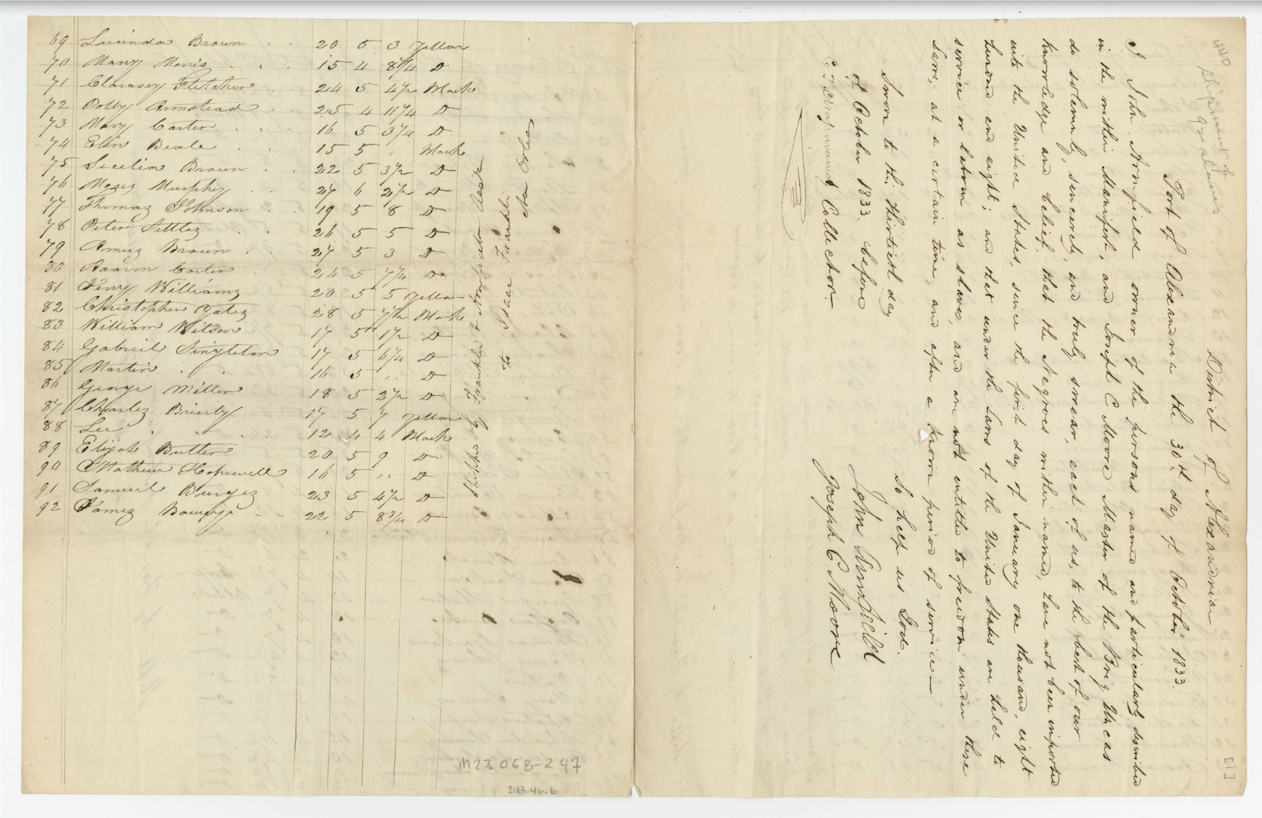 69 Lucinda Brown 20 5 3 Yellow
70 Mary Morris 15 4 8 1/4 D
71 Clarasey Fletcher 24 5 4 1/2 Black
72 Dolby Armstead 25 4 11 1/4 D
73 Mary Carter 16 5 3 1/4 D
74 Ellen Beale 15 5 " Black
75 Cecilia Brown 22 5 3 1/2 D
76 Murphy 27 6 2 1/2 D
77 Thomas Johnson 19 5 8 D
78 Peter Settles 26 5 5 D
79 Brown 27 5 3 D
80 Aaron Carter 24 5 7 1/4 Do
81 Williams 20 5 5 Yellow
82 Christopher Yates 28 5 7 1/2 Black
83 William Wilson 17 5 1 1/2 D
84 Gabriel Singleton 17 5 6 1/4 D
85 Martin 16 5 " D
86 George Miller 18 5 2 1/2 D
87 Charles Brierly 17 5 7 Yellow
88 Lee 12 4 4 Black
89 Elijah Butler 20 5 9 D
90 Mathew Hopewell 16 5 " D
91 Samuel Burges 23 5 4 1/2 D
92 James 22 5 8 3/4 D
Shipped by
to Isaac Franklin
New Orleans
M23068-247
2013.46.6
440
Shipment of
slaves
[13]
District of Alexandria
Port of Alexandria the 30th day of October 1833.
I John Armfield owner of the persons named and particularly described
in the within Manifest, and Joseph C Moore Master of the Brig Uncas
do solemnly, sincerely and truly swear each of us, to the best of our
knowledge and belief, that the Negroes within named, have not been imported
into the United States, since the first day of January one thousand, eight
hundred and eight; and that under the Laws of the United States are held to
service or labour as slaves, and are not entitled to freedom under these
Laws, at a certain time, and after a known period of service—
So help us God.
Sworn to this thirtieth day
of October 1833 before
Collector.
John Armfield
Joseph C Moore